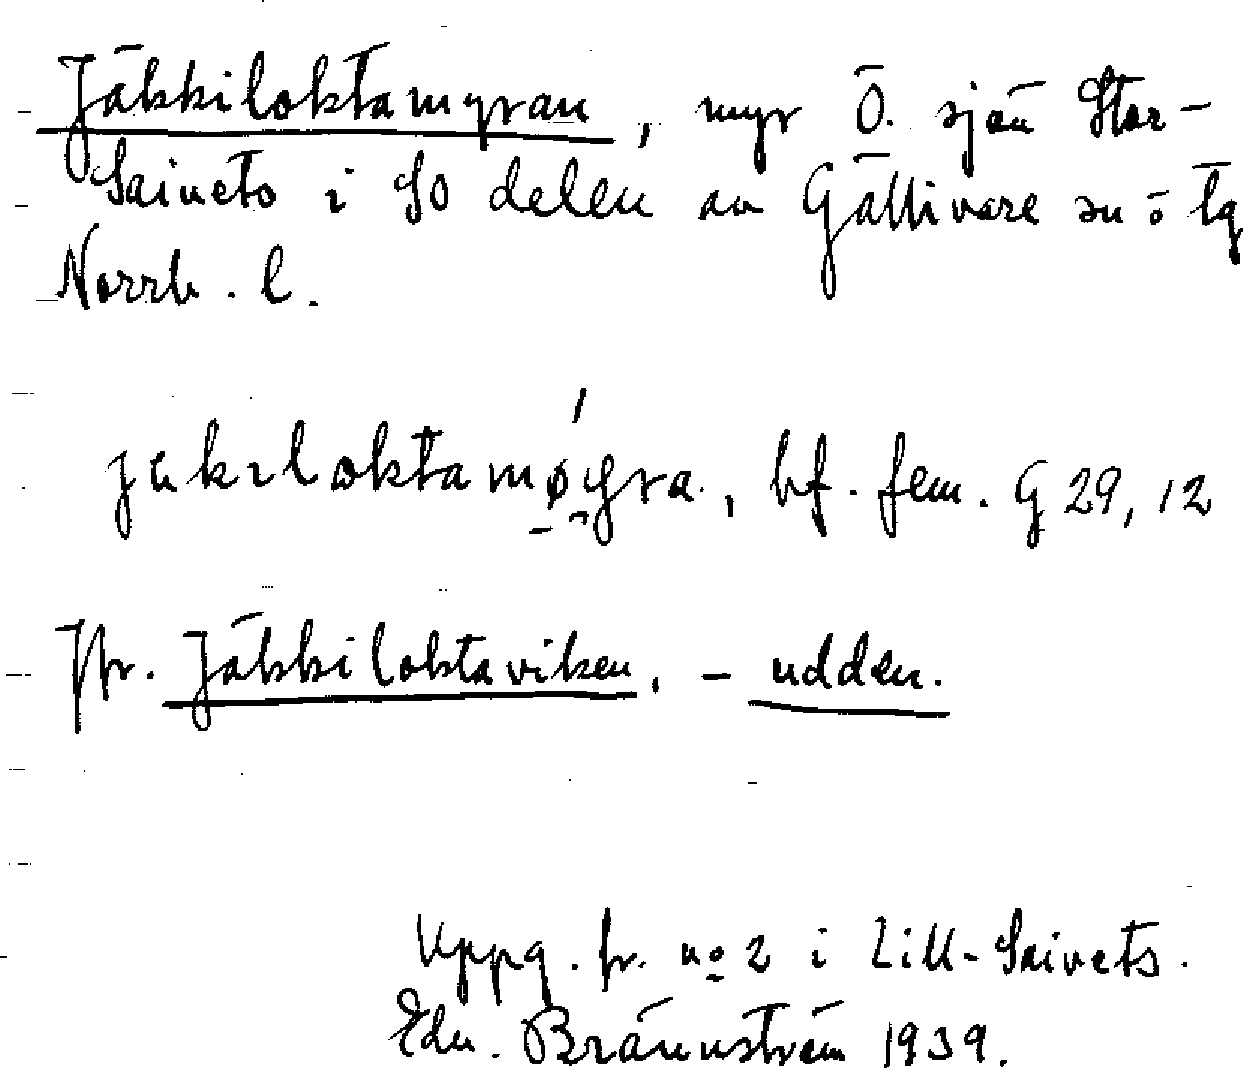 Jäkkiloktamyran, myr Ö. sjön Stor-
Saivets i SO delen av Gällivare sn o tg
Norrb. l.
jäkiloktamøgra., bf. fem. G 29, 12
Jfr. Jäkkiloktaviken, - udden.
Uppg. fr. no 2 i Lill-Saivets.
Edv. Brännström 1939.